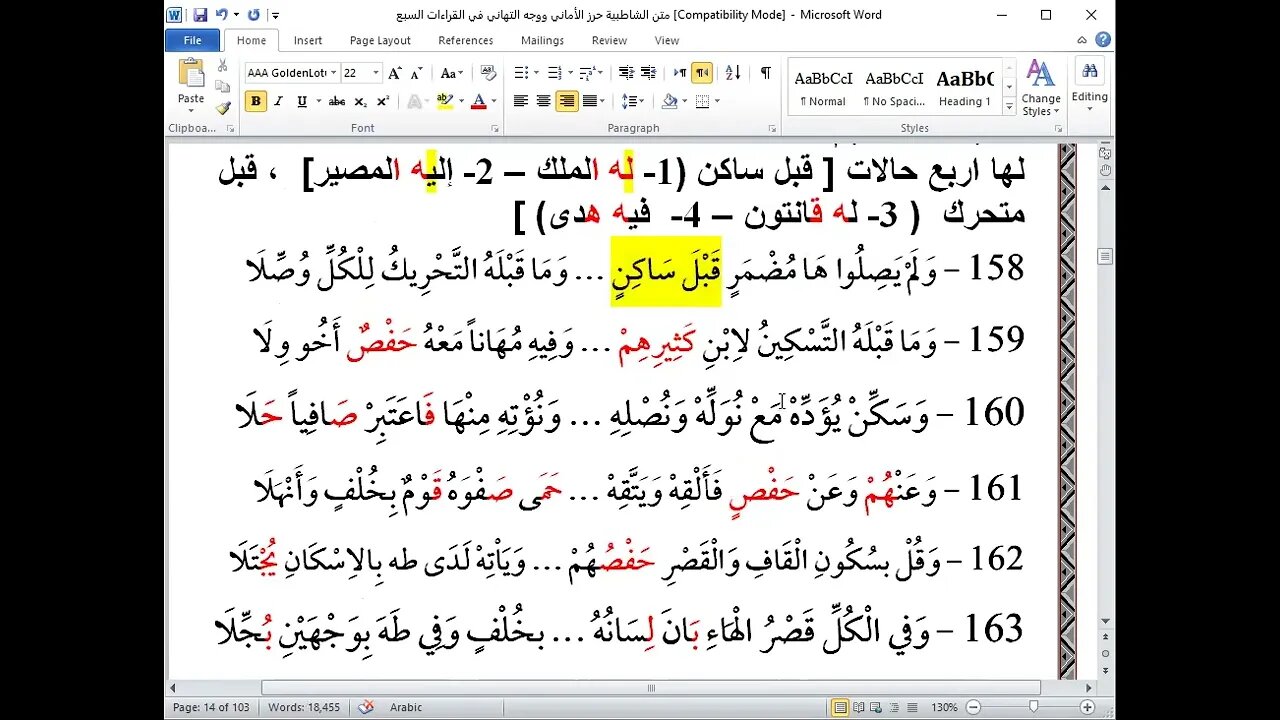 متن الشاطبية حرز الأماني ووجه التهاني في القراءات السبع [Compatibility Mode] - Microsoft Word
File Home Insert Page Layout References Mailings Review View
AAA GoldenLotu 22
Paste
AaBbCcI AaBbCcI AaBbC
¶ Normal ¶ No Spaci... Heading 1
Change Styles
Editing
Clipboa... Font Paragraph Styles
لها اربع حالات [ قبل ساكن (1- له الملك – 2- إليه المصير] ، قبل
متحرك ( 3- له قانتون – 4- فيه هدى) ]
158 – وَلَمْ يَصِلُوا هَا مُضْمَرٍ قَبْلَ سَاكِنٍ ... وَمَا قَبْلَهُ التَّحْرِيكُ لِلْكُلِّ وُصِّلَا
159 – وَمَا قَبْلَهُ التَّسْكِينُ لِابْنِ كَثِيرِهِمْ ... وَفِيهِ مُهَاناً مَعْهُ حَفْصٌ أَخُو وِلَا
160 – وَسَكِّنْ يُؤَدِّهْ مَعْ نُوَلِّهْ وَنُصْلِهِ ... وَنُؤْتِهِ مِنْهَا فَاعَتَبِرْ صَافِياً حَلَا
161 – وَعَنْهُمْ وَعَنْ حَفْصٍ فَأَلْقِهْ وَيَتَّقِهْ ... حَمَى صَفْوَهُ قَوْمٌ بِخُلْفٍ وَأَنْهَلَا
162 – وَقُلْ بسُكُونِ الْقَافِ وَالْقَصْرِ حَفْصُهُمْ ... وَيَأْتِهْ لَدَى طه بِالِاسْكَانِ يُجْتَلَا
163 – وَفي الْكُلِّ قَصْرُ الْهَاءِ بَانَ لِسَانُهُ ... بخُلْفٍ وَفِي طَهَ بِوَجْهَيْنِ بُجِّلَا
Page: 14 of 103 Words: 18,455 Arabic 130%